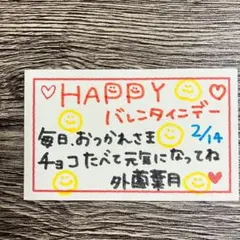 HAPPY
バレンタインデー
毎日、おつかれさま 2/14
チョコたべて元気になってね
外薗葉月